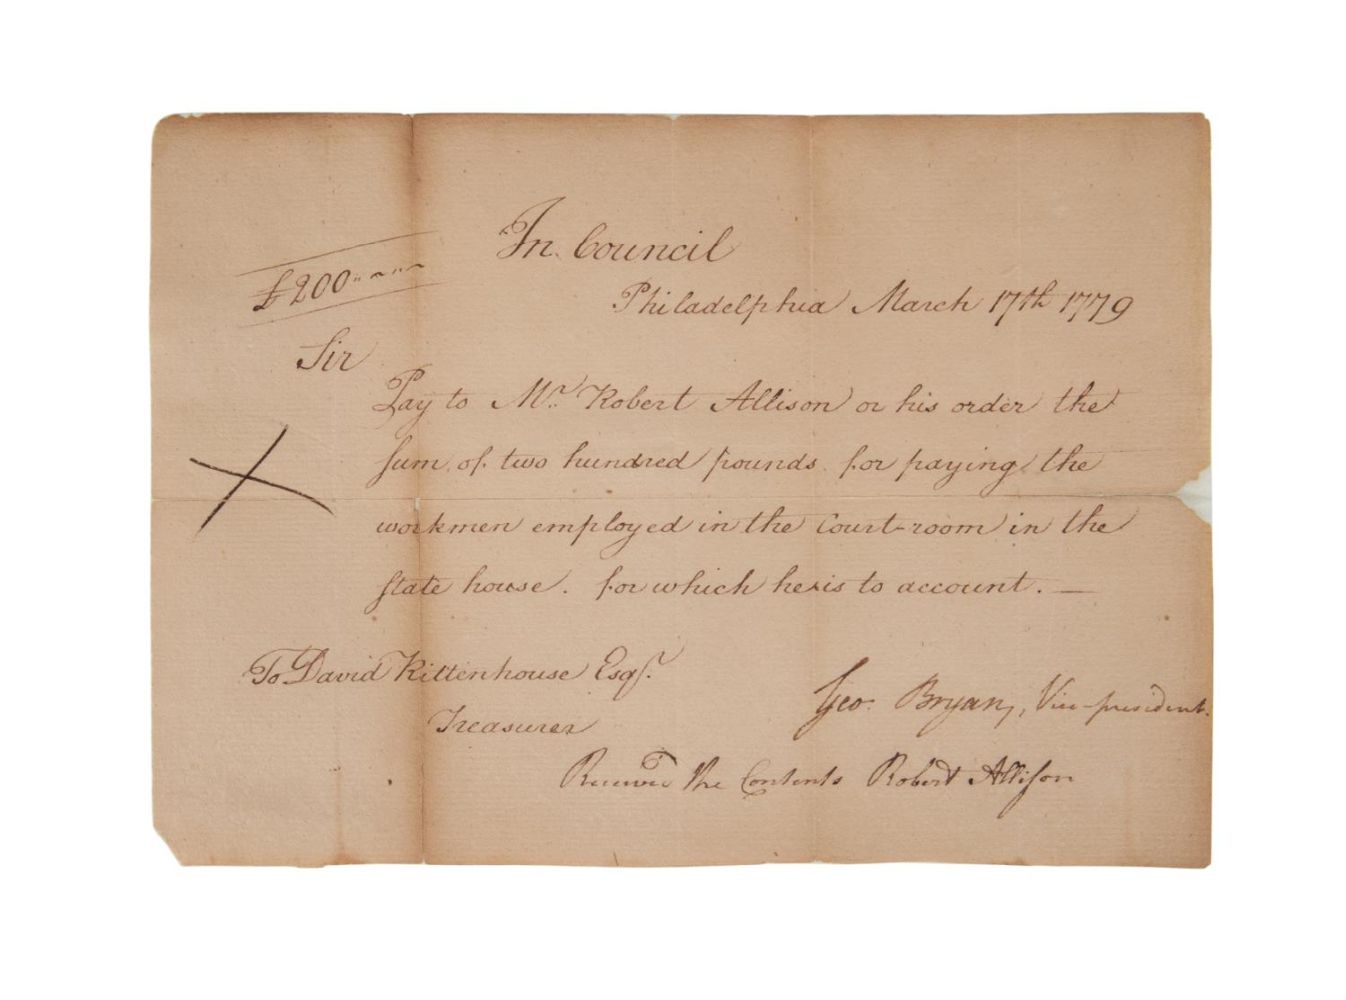 In Council
£200
Philadelphia March 17th 1779
Sir
Pay to Mr. Robert Allison or his order the
sum of two hundred pounds for paying the
workmen employed in the Court-room in the
State house. for which he is to account. —
To David Rittenhouse Esqr.
Treasurer
Geo. Bryan, Vice-president.
Received the Contents Robert Allison